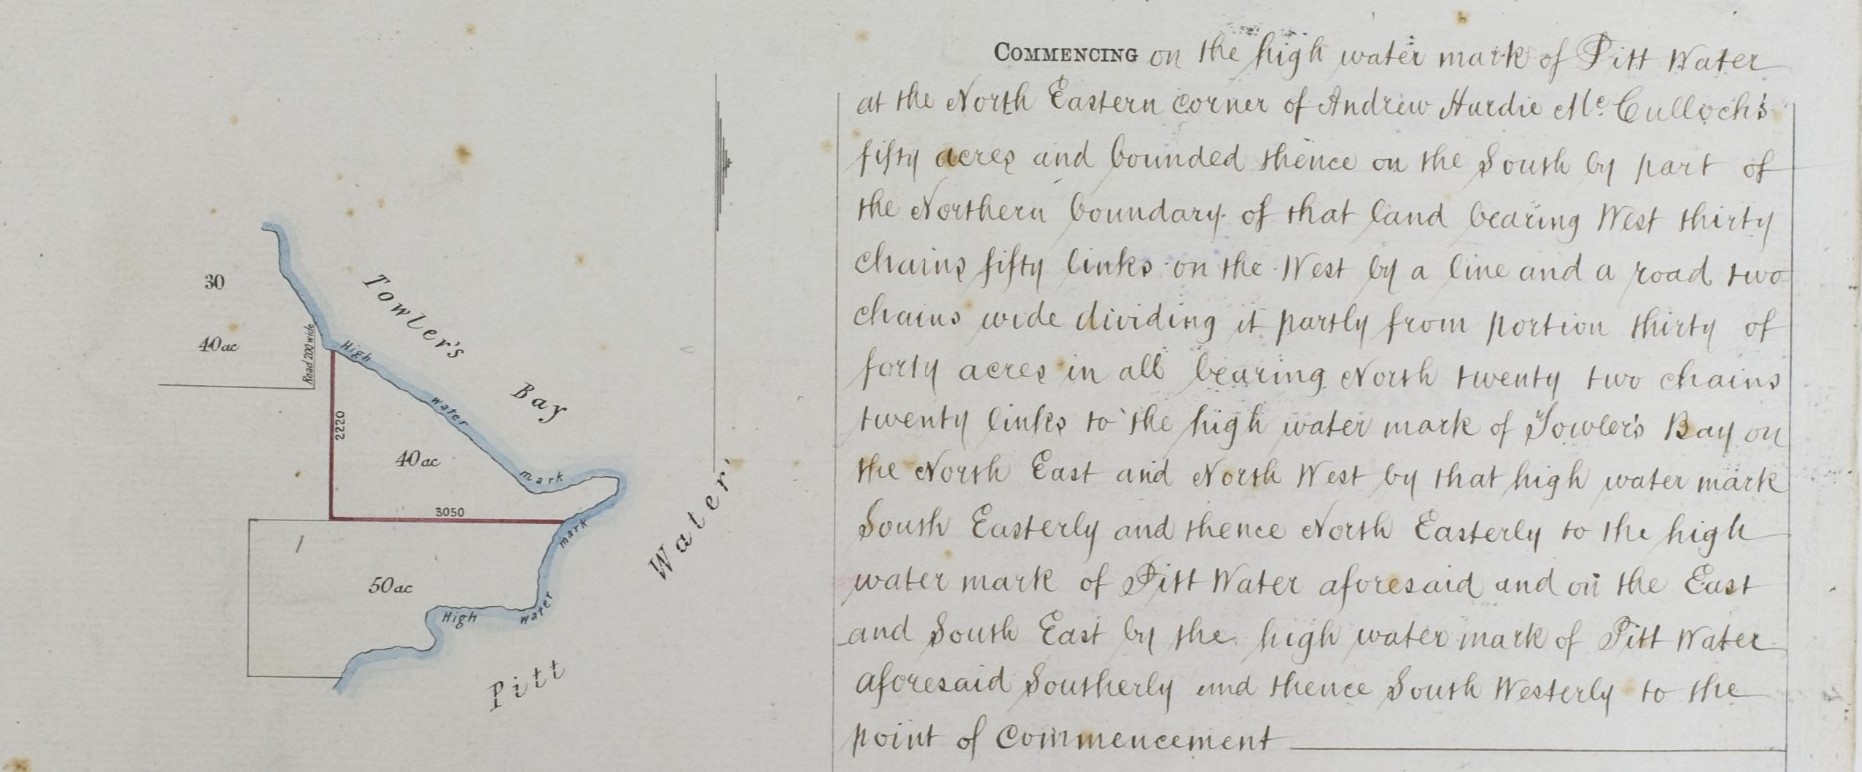 30
40ac
Road 200 wide
Towler's
Bay
High
water
mark
2220
40ac
3050
mark
water
High
50ac
Pitt
Water
COMMENCING on the high water mark of Pitt Water
at the North Eastern corner of Andrew Hardie Mc. Culloch's
fifty acres and bounded thence on the South by part of
the Northern boundary of that land bearing West thirty
chains fifty links on the West by a line and a road two
chains wide dividing it partly from portion thirty of
forty acres in all bearing North twenty two chains
twenty links to the high water mark of Towler's Bay on
the North East and North West by that high water mark
South Easterly and thence North Easterly to the high
water mark of Pitt Water aforesaid and on the East
and South East by the high water mark of Pitt Water
aforesaid Southerly and thence South Westerly to the
point of Commencement